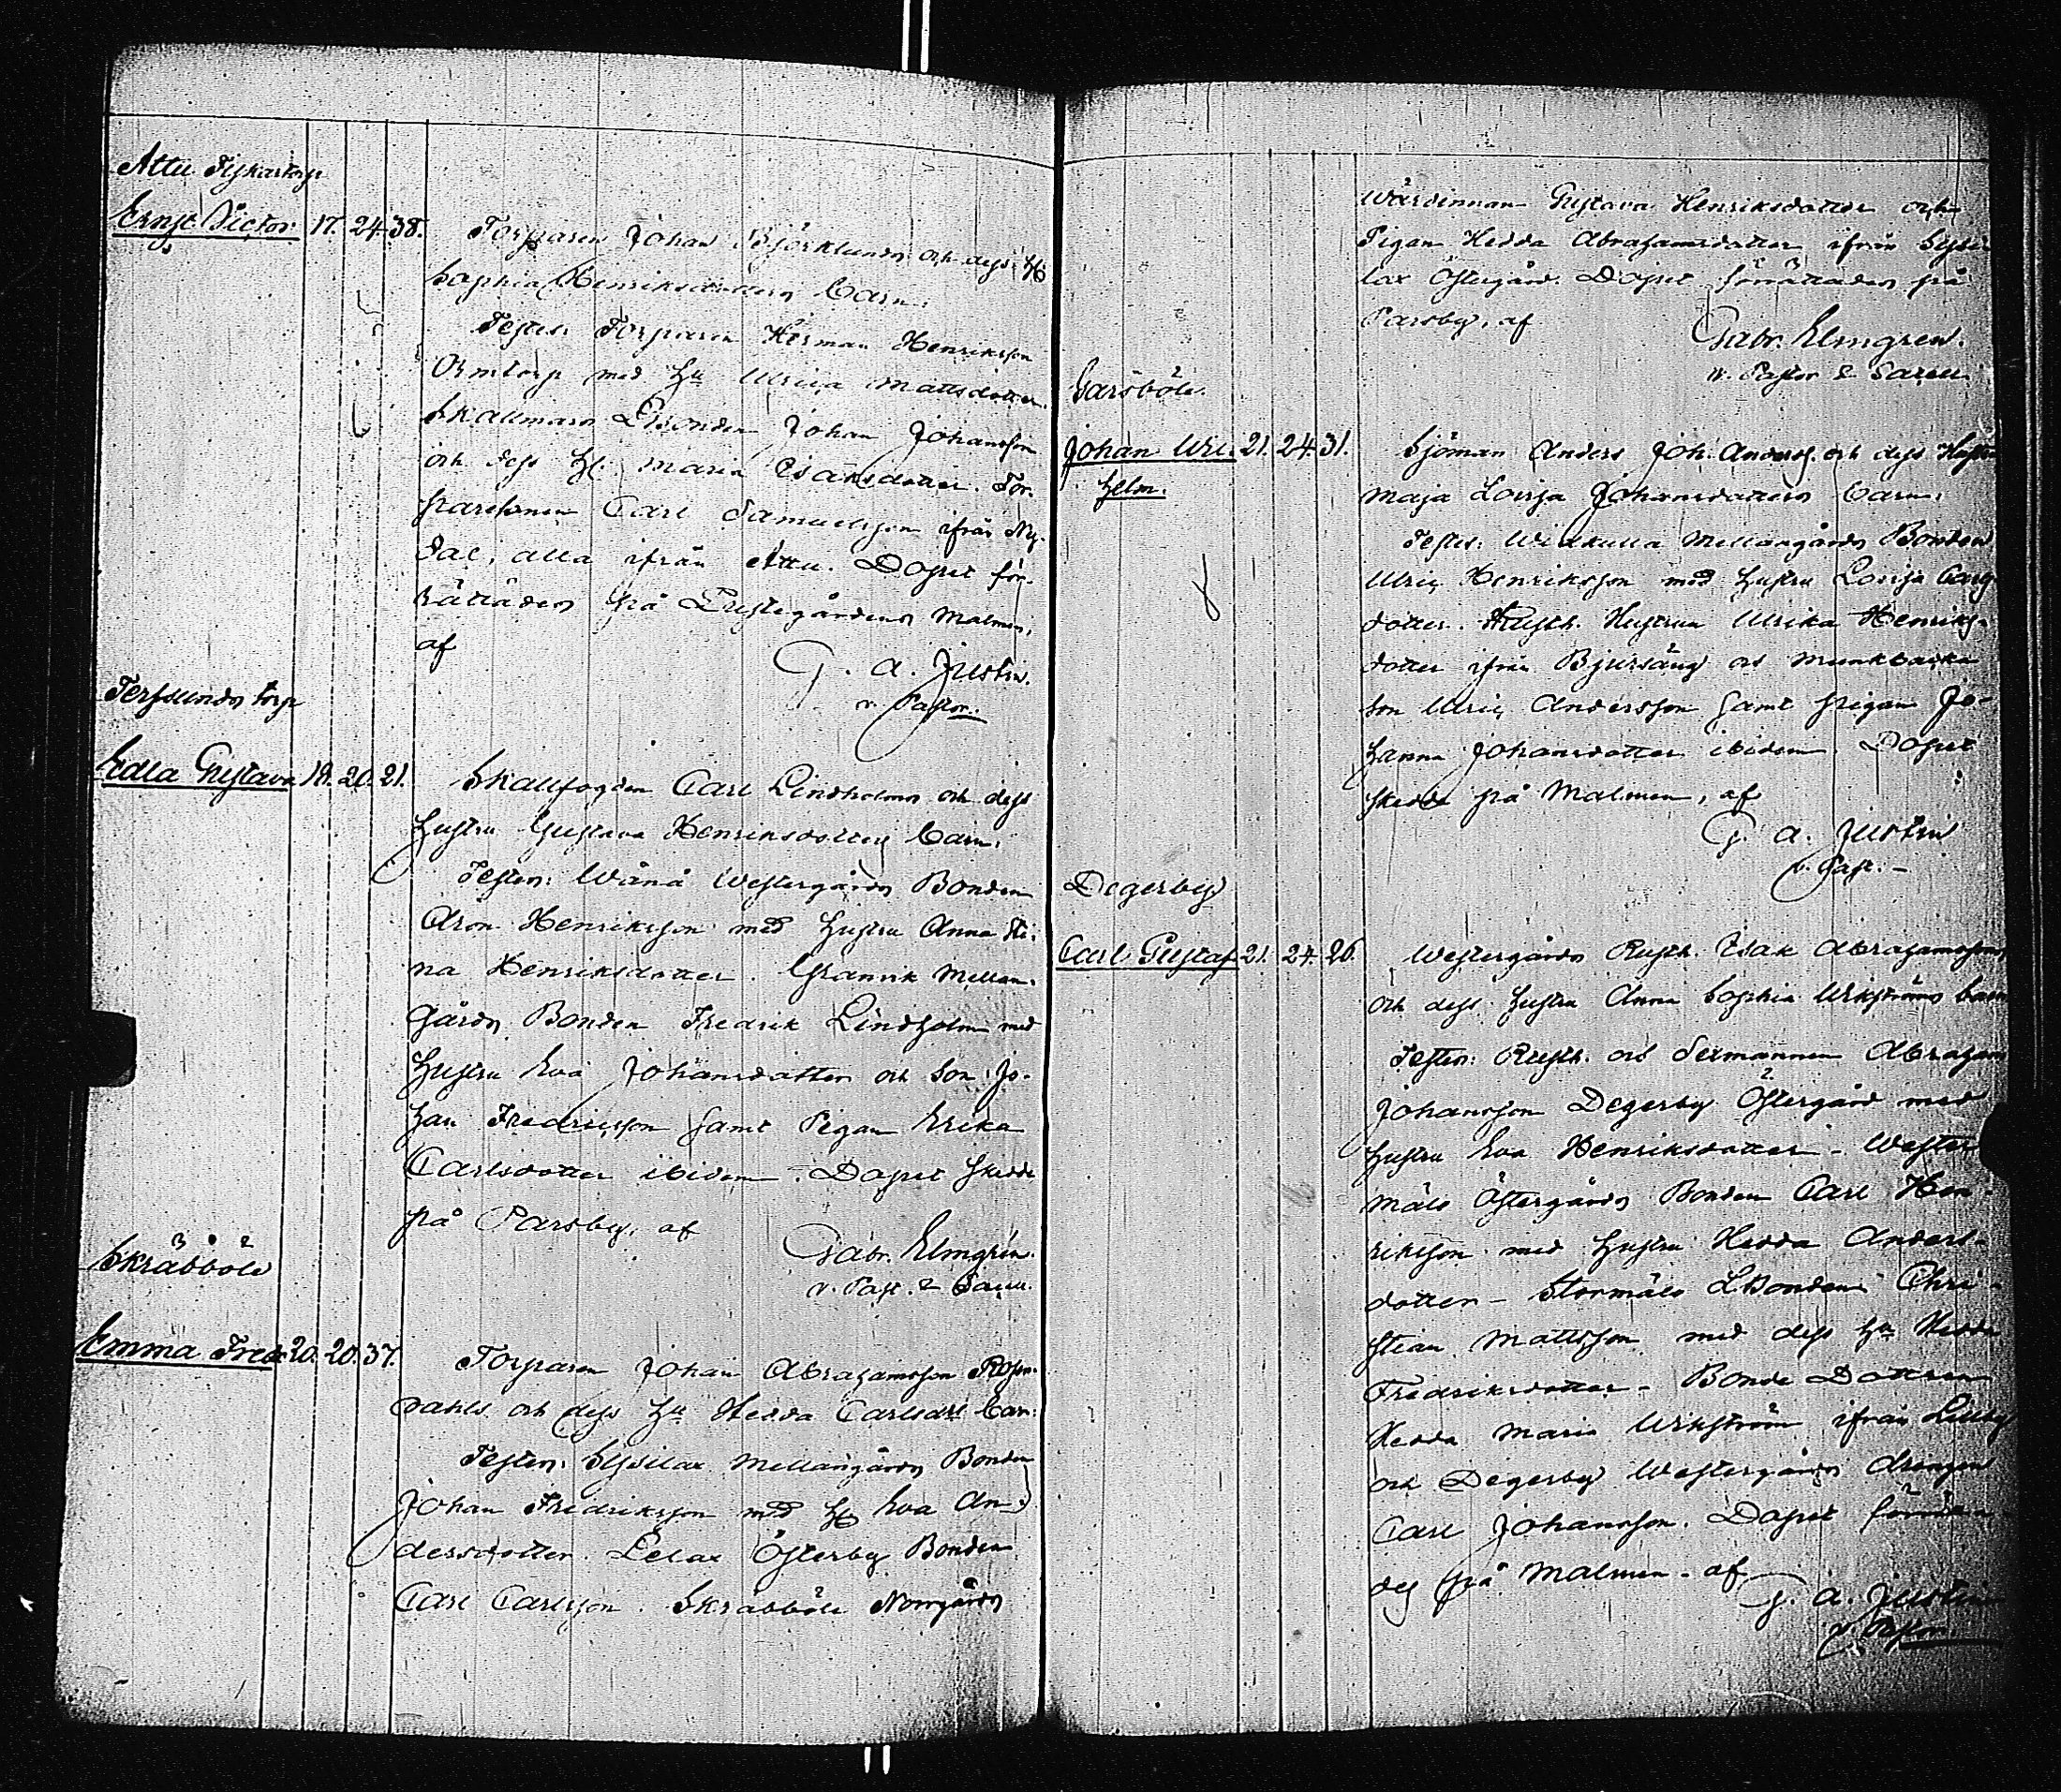 Attu Fiskartorp
Ernst Victor 17. 24. 38.
Torparen Johan Björklunds och dess H.
Sophia Henriksdotters barn.
Testes: Torparen Herman Henriksson
Ormtorp med Hu Ulrica Mattsdotter.
Skallmars LBonden Johan Johansson
och dess H. Maria Isaksdotter. Tor-
paresonen Carl Samuelsson ifrån Ny-
dal, alla ifrån Attu. Dopet för-
rättades på Prestegårdens Malmen,
af
G. A. Justin.
v. Pastor.
Terfsunds torp
Edla Gustava 18. 20. 21.
Skallfogden Carl Lindholms och dess
hustru Gustava Henriksdotters barn.
Testes: Wånå Westergårds Bonden
Aron Henriksson med hustru Anna Sti-
na Henriksdotter. Granvik Mellan-
gårds Bonden Fredrik Lindholm med
hustru Eva Johansdotter och son Jo-
han Fredricsson samt Pigan Erika
Carlsdotter ibidem. Dopet skedde
på Parsby, af
Gabr. Elmgren.
v. Past. & Sacell.
Skräbböle
Emma Fred: 20. 20. 37.
Torparen Johan Abrahamsson Rosen-
dahls och dess Hu Hedda Carlsdrs barn:
Testes: Sysilax Mellangårds Bonden
Johan Fredriksson med H. Eva An-
dersdotter. Lelax Österby Bonden
Carl Carlsson. Skräbböle Norrgårds
Wärdinnan Gustava Henriksdotter och
Pigan Hedda Abrahamsdotter ifrån Sysi-
lax Östergård. Dopet förrättades på
Parsby, af
Gabr. Elmgren.
v. Pastor & Sacell.
Garsböle.
Johan Wil- 21. 24. 31.
helm.
Sjöman Anders Joh. Anders. och dess Hustru
Maja Lovisa Johansdotters barn.
Testes: Widkulla Mellangårds Bonden
Ulric Henriksson med hustru Lovisa Carls-
dotter. Rusth. Hustrun Ulrika Henriks-
dotter ifrån Bjursäng och Munkbacka
son Ulric Andersson samt pigan Jo-
hanna Johansdotter ibidem. Dopet
skedde på Malmen, af
G. A. Justin
v. Past. -
Degerby
Carl Gustaf 21. 24. 26.
Westergårds Rusth. Isak Abrahamssons
och dess hustru Anna Sophia Wikströms barn
Testes: Rusth. och Sexmannen Abraham
Johansson Degerby Östergård med
hustru Eva Henriksdotter - Wester
mälö Östergårds Bonden Carl Hen-
riksson med hustru Hedda Anders-
dotter - Stormälö LBonden Chri-
stian Mattsson med dess Hu Hedda
Fredriksdotter - Bonde Dottren
Hedda Maria Wikström ifrån Lillby
och Degerby Westergårds drengen
Carl Johansson. Dopet förrätta-
des på Malmen - af
G. A. Justin
v. Pastor.